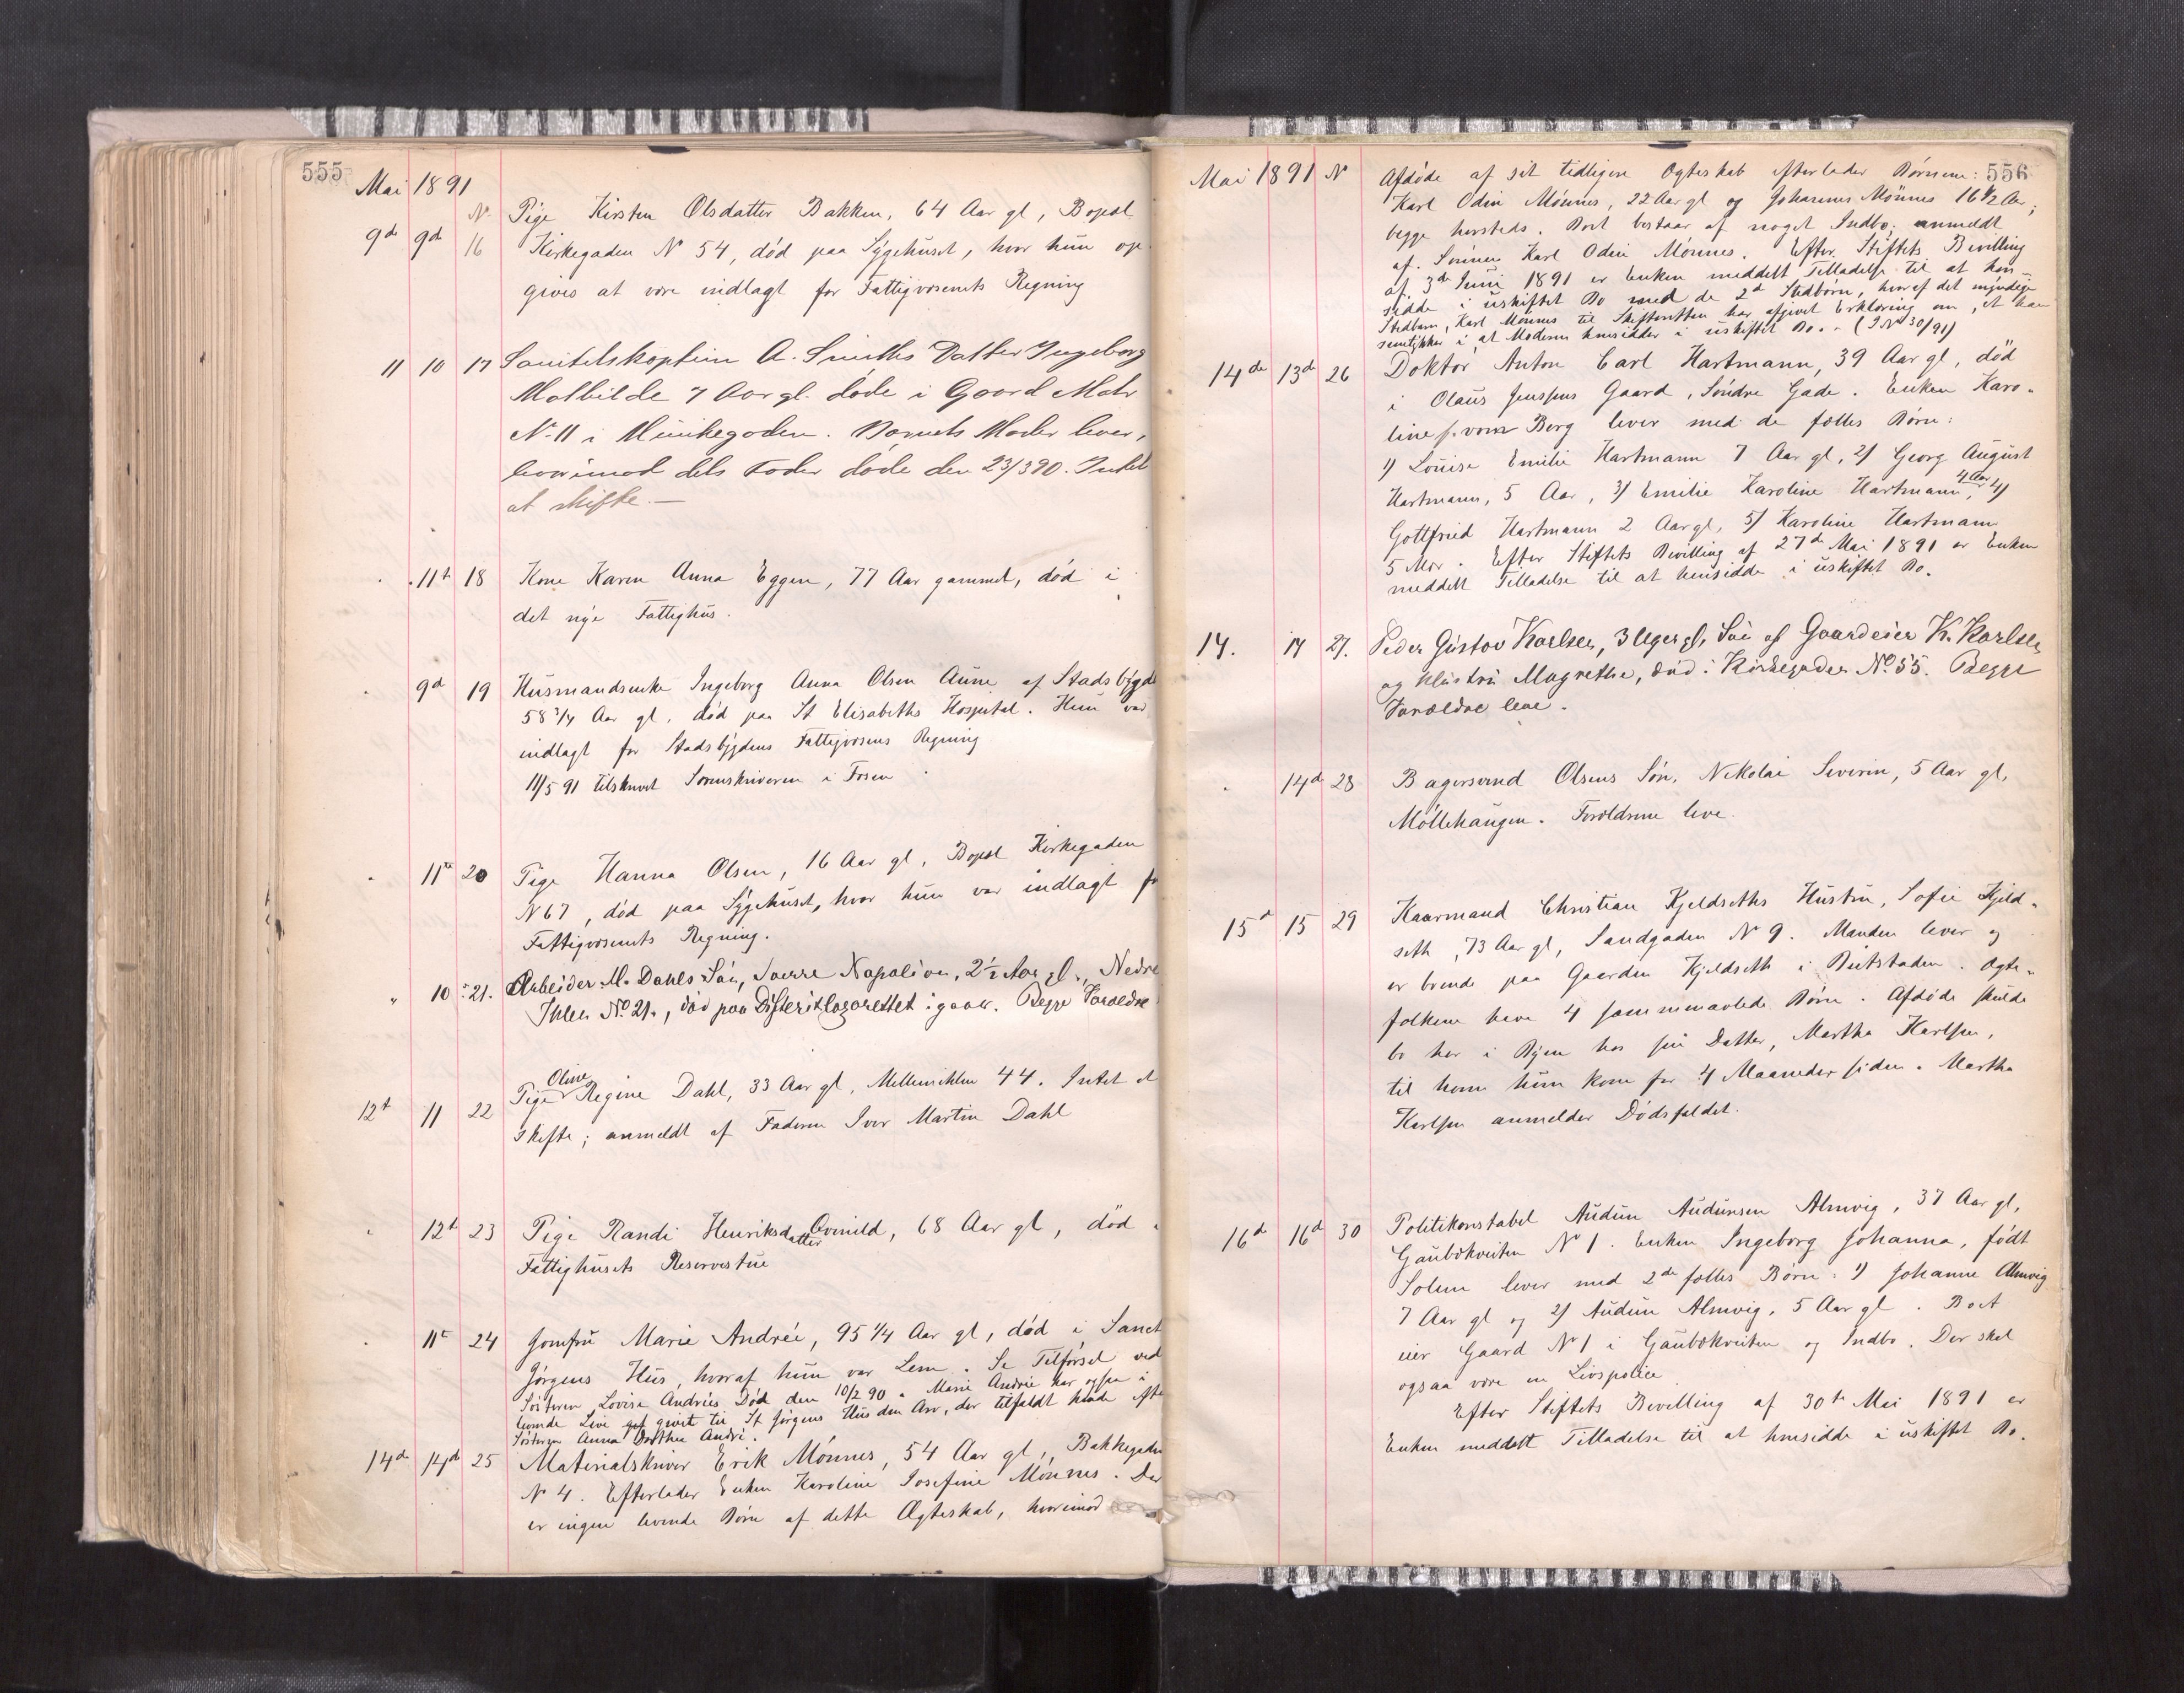 555
Mai 1891
N.
9de 9de 16 Pige Kirsten Olsdatter Bakken, 64 Aar gl, Bopæl
Kirkegaden No 54, død paa Sygehuset, hvor hun op-
gives at være indlagt for Fattigvæsenets Regning
11 10 17 Sanitetskaptein A. Smiths Datter Ingeborg
Mathilde 7 Aar gl. døde i Gaard Matr
No 11 i Munkegaden. Barnets Moder lever,
hvorimod dets Fader døde den 23/3 90. Intet
at skifte.—
11te 18 Kone Karen Anna Eggen, 77 Aar gammel, død i
det nye Fattighus.
9de 19 Husmandsenke Ingeborg Anna Olsen Aune af Stadsbygde
58 3/4 Aar gl, død paa St Elisabeths Hospital. Hun var
indlagt for Stadsbygdens Fattigvæsens Regning
11/5 91 tilskrevet Sorenskriveren i Fosen
11te 20 Pige Hanna Olsen, 16 Aar gl, Bopæl Kirkegaden
No 67, død paa Sygehuset, hvor hun var indlagt for
Fattigvæsenets Regning.
" 10 21. Arbeider M. Dahls Søn, Sverre Napoleon, 2½ Aar gl., Nedre
Ihlen No 21., død paa Difteritlazarettet igaar. Begge Forældre
Oline
12te 11 22 Pige Regine Dahl, 33 Aar gl, Mellemihlen 44. Intet at
skifte; anmeldt af Faderen Iver Martin Dahl
12te 23 Pige Randi Henriksdatter Qvenild, 68 Aar gl, død i
Fattighusets Reservestue
11te 24 Jomfru Marie Andrée, 95 1/4 Aar gl, død i Sanct
Jørgens Hus, hvoraf hun var Lem. Se Tilførsel ved
Søsteren Lovise Andrées Død den 10/2 90. Marie Andrée har ogsaa i
levende Live givet til St Jørgens Hus den Arv, der tilfaldt hende efter
Søsteren Anna Dorthea André.
14de 14de 25 Materialskriver Erik Mønnes, 54 Aar gl, Bakkegaden
No 4. Efterlader Enken Karoline Josefine Mønnes. Der
er ingen levende Børn af dette Ægteskab, hvorimod
556
Mai 1891 N
Afdøde af sit tidligere Ægteskab efterlader Børnene:
Karl Odin Mønnes, 22 Aar gl og Johannes Mønnes 16 1/2 Aar,
begge hersteds. Boet bestaar af noget Indbo; anmeldt
af Sønnen Karl Odin Mønnes. Efter Stiftets Bevilling
af 3de Juni 1891 er Enken meddelt Tilladelse til at hen-
sidde i uskiftet Bo med de 2de Stedbørn, hvoraf det myndige
Stedbarn, Karl Mønnes til Skifteretten har afgivet Erklæring om, at han
samtykker i at Moderen hensidder i uskiftet Bo. - (J.No 30/91)
14de 13de 26 Doktor Anton Carl Hartmann, 39 Aar gl, død
i Olaus Jenssens Gaard, Søndre Gade. Enken Karo-
line f. vom Berg lever med de fælles Børn:
1) Louise Emilie Hartmann 7 Aar gl, 2) Georg August
Hartmann, 5 Aar, 3) Emilie Karoline Hartmann, 4 Aar, 4)
Gottfried Hartmann 2 Aar gl, 5) Karoline Hartmann
5 Mdr. Efter Stiftets Bevilling af 27de Mai 1891 er Enken
meddelt Tilladelse til at hensidde i uskiftet Bo.
14. 14 27. Peder Gustav Karlsen, 3 Uger gl, Søn af Gaardeier K. Karlsen
og Hustru Magrethe, død i Kirkegaden No 55. Begge
Forældre leve.
14de 28 Bagersvend Olsens Søn, Nikolai Severin, 5 Aar gl,
Møllehaugen. Forældrene leve.
15de 15 29 Kaarmand Christian Kjeldseths Hustru, Sofie Kjeld-
seth, 73 Aar gl, Sandgaden No 9. Manden lever og
er boende paa Gaarden Kjeldseth i Bitstaden. Ægte-
folkene have 4 sammenavlede Børn. Afdøde skulde
bo her i Byen hos sin Datter, Martha Karlsen,
til hvem hun kom for 4 Maaneder siden. Martha
Karlsen anmelder Dødsfaldet.
16de 16de 30 Politikonstabel Audun Audunsen Almvig, 37 Aar gl,
Gaubækveiten No 1. Enken Ingeborg Johanna, født
Solem lever med 2de fælles Børn: 1) Johanne Almvig
7 Aar gl og 2) Audun Almvig, 5 Aar gl. Boet
eier Gaard No 1 i Gaubækveiten og Indbo. Der skal
ogsaa være en Livspolice
Efter Stiftets Bevilling af 30te Mai 1891 er
Enken meddelt Tilladelse til at hensidde i uskiftet Bo.